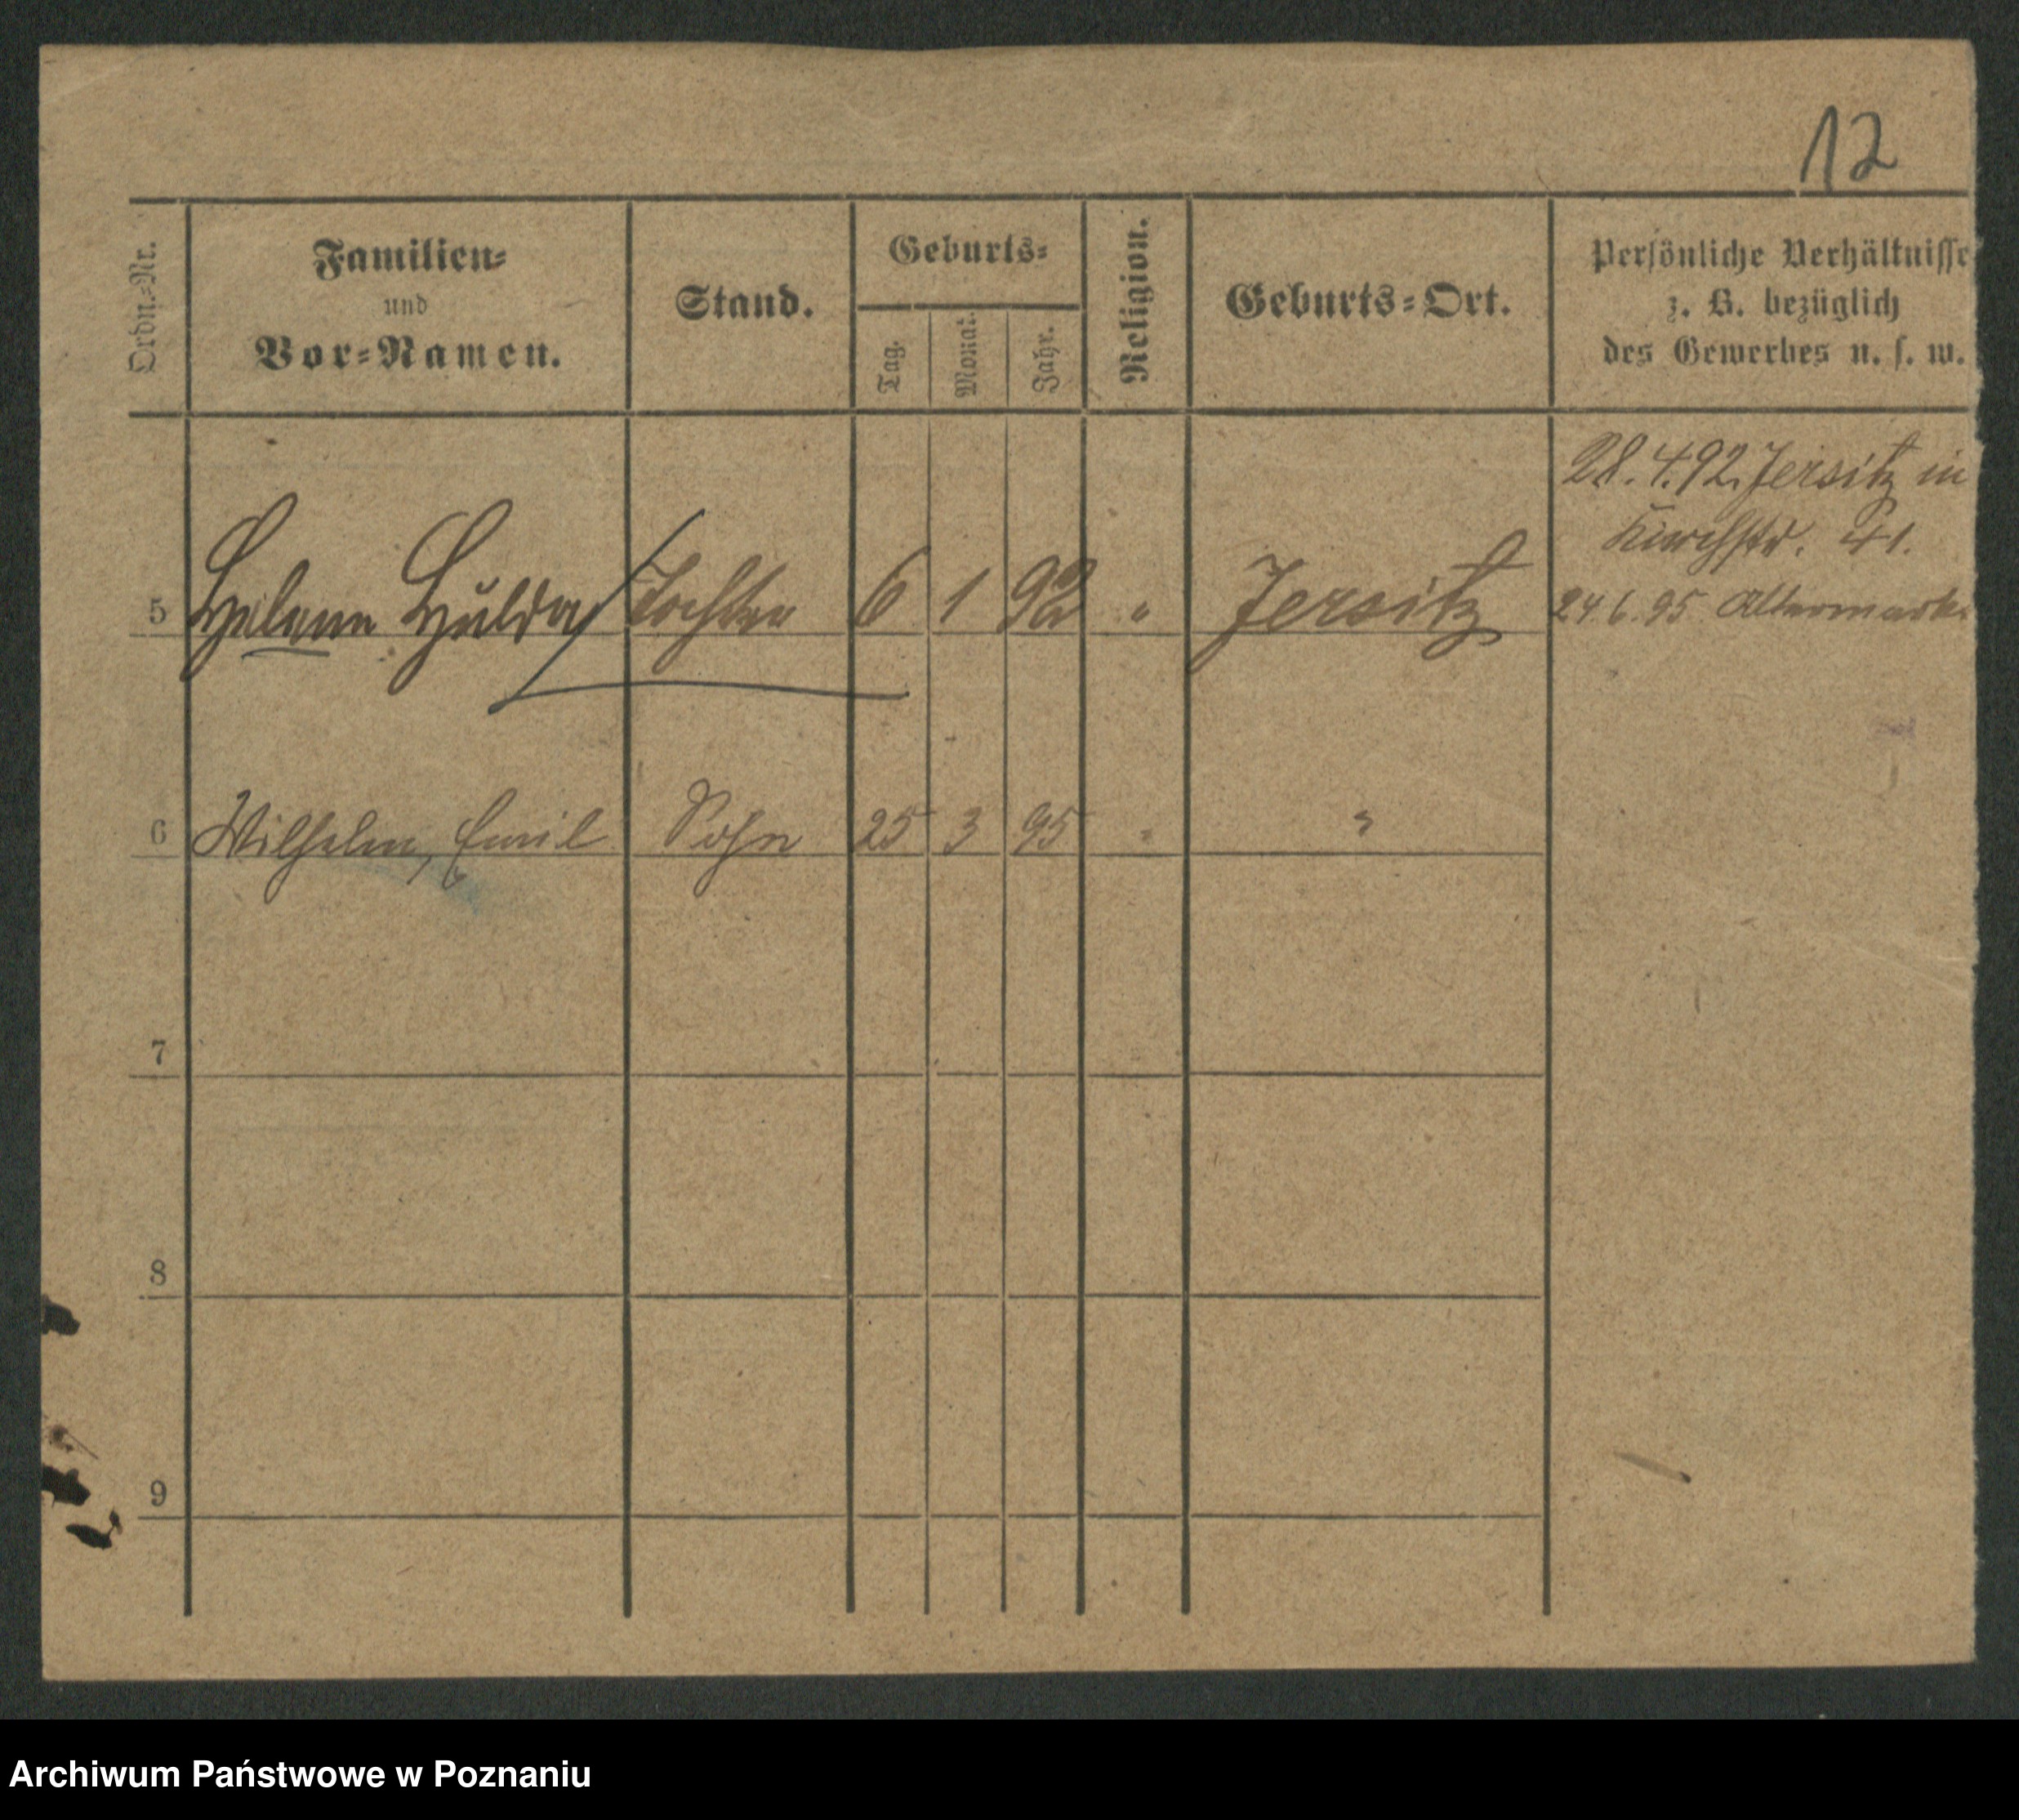 12
Ordn.-Nr.
Familien-
und
Vor-Namen.
Stand.
Geburts-
Tag.
Monat.
Jahr.
Religion.
Geburts-Ort.
Persönliche Verhältnisse
z. B. bezüglich
des Gewerbes u. s. w.
28.4.92. Jersitz in
Kirchstr. 41.
5 Helene Hulda Tochter 6 1 92 " Jersitz
24.6.95
6 Wilhelm, Emil Sohn 25 3 95 " "
7
8
9
Archiwum Państwowe w Poznaniu